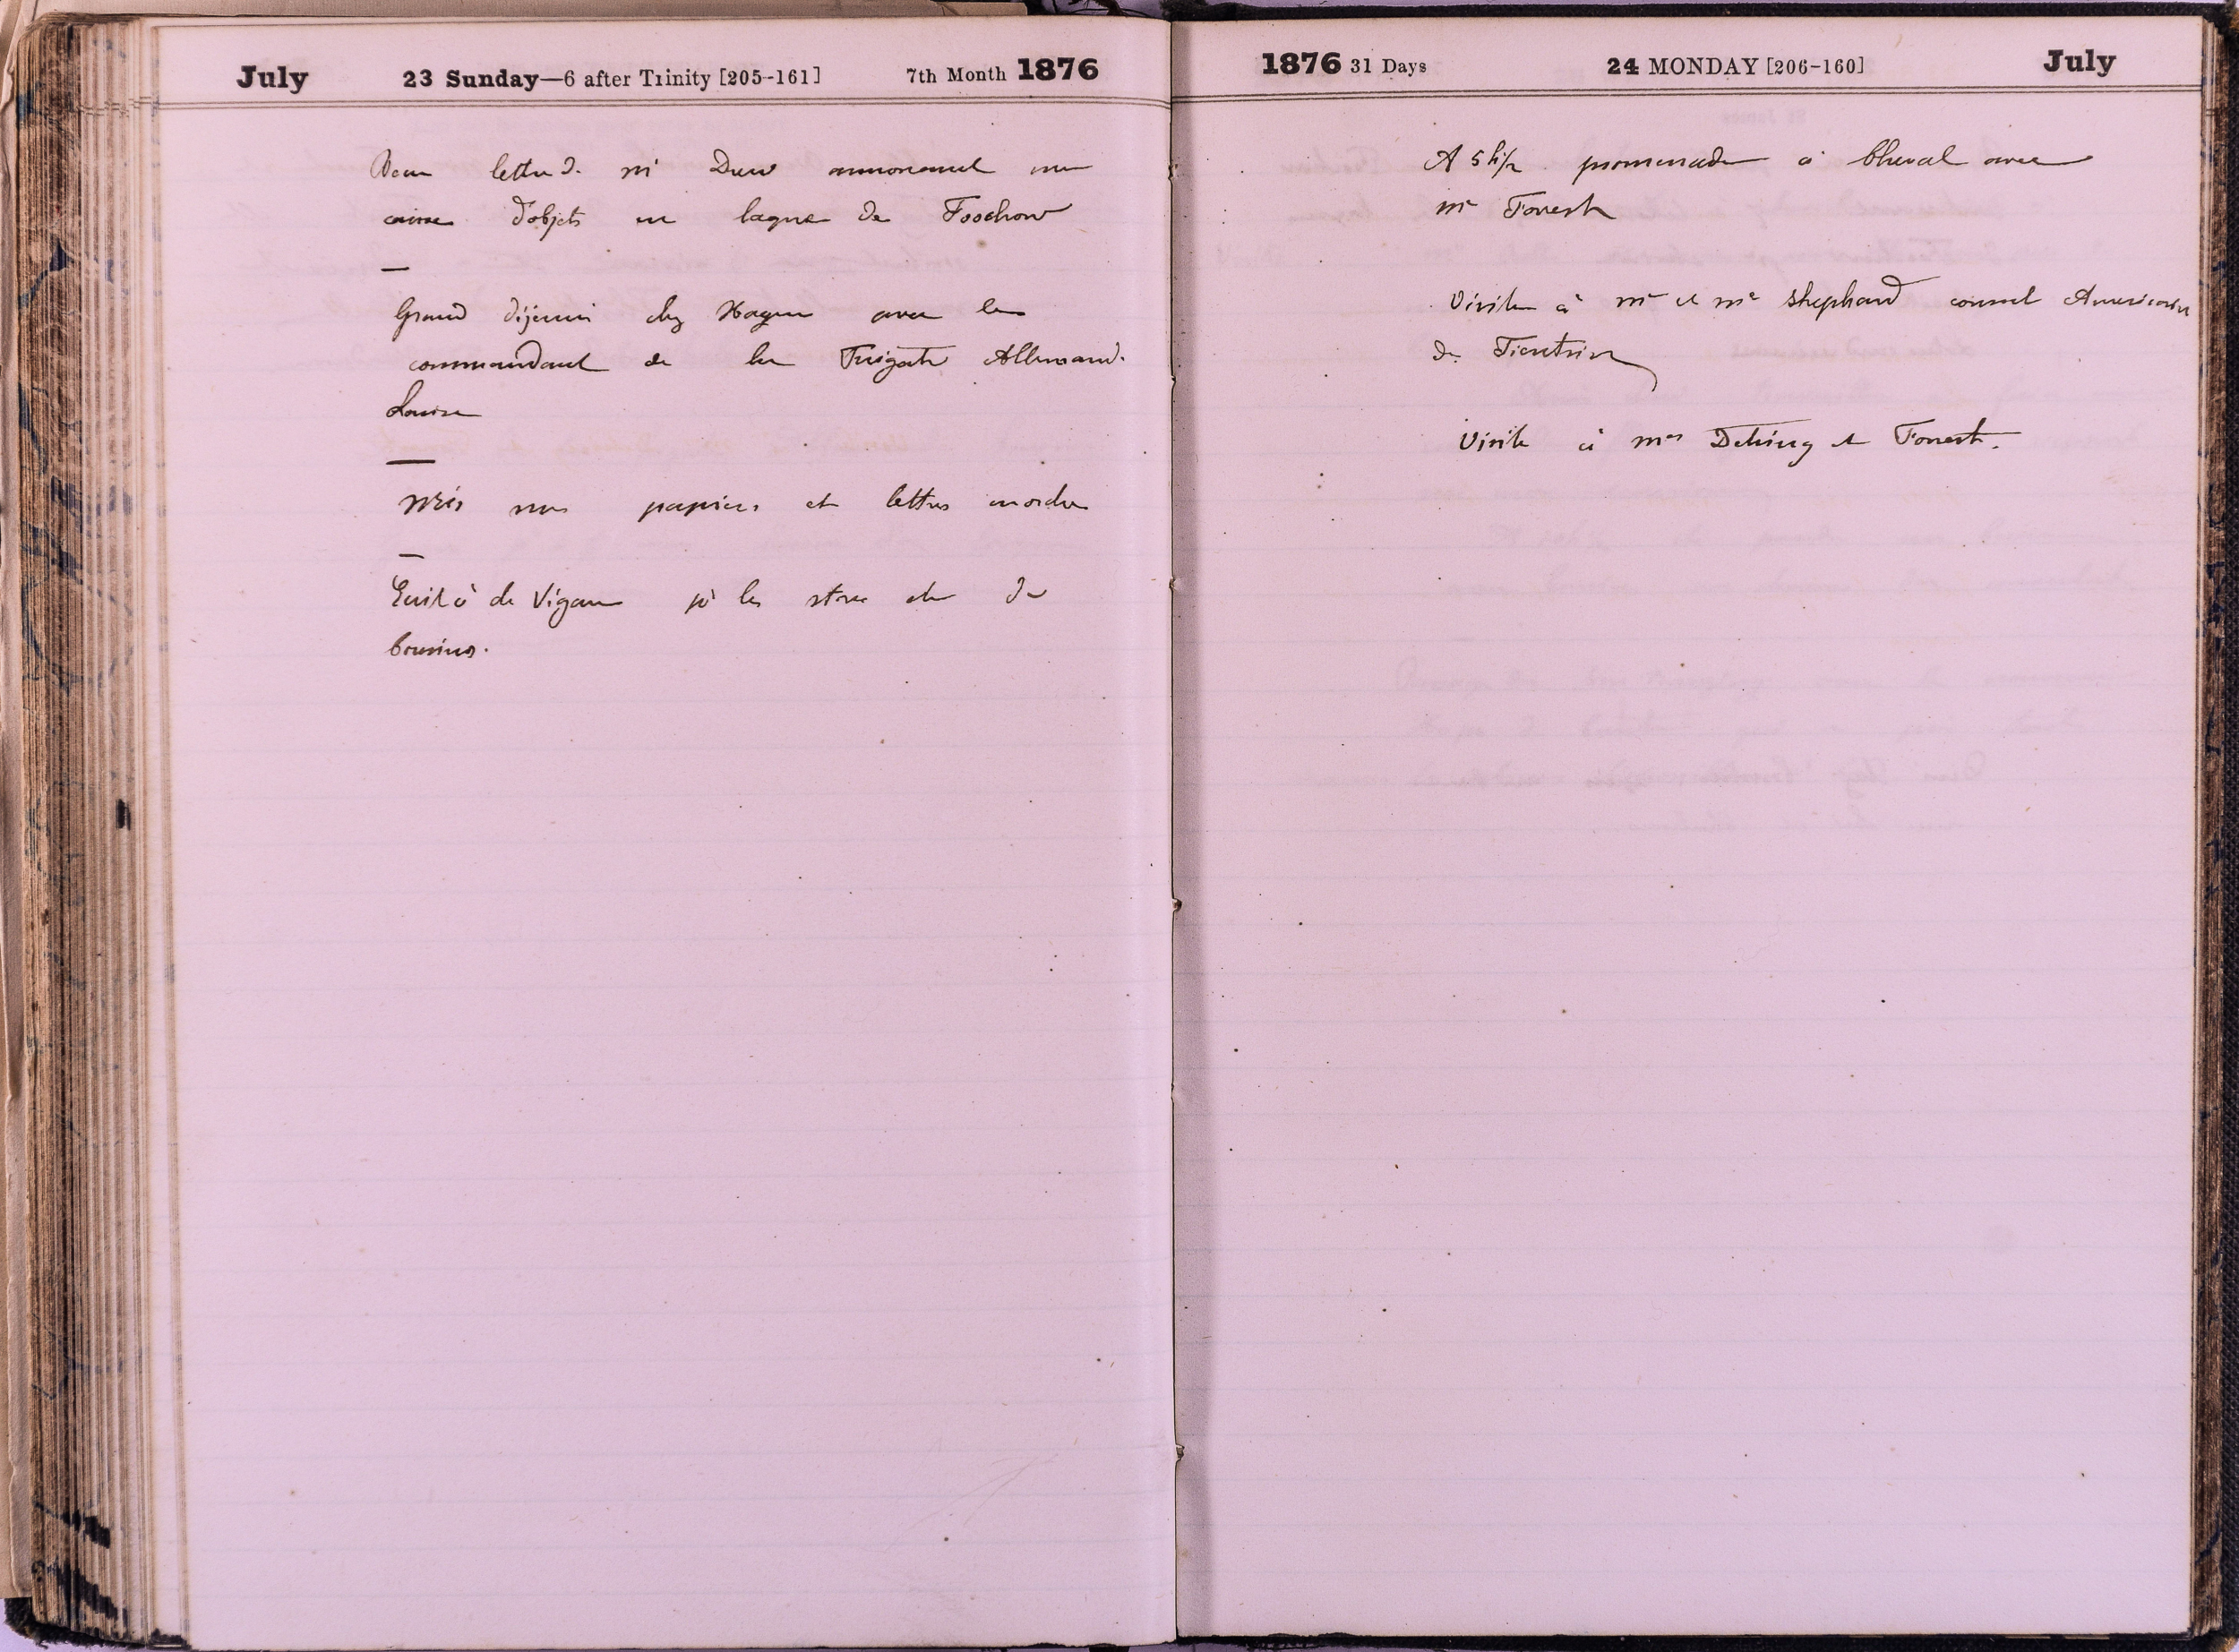 July 23 Sunday—6 after Trinity [205-161] 7th Month 1876
lettre de Mr Drew annoncant une
caisse d'objets en laque de Foochow
—
Grand déjeuner chez Hagen avec le
commandant de la Frégate Allemande
Louise
—
Mis mes papiers et lettres en ordre
—
Ecrit à de Vigan pr les stores etc de
1876 31 Days 24 MONDAY [206-160] July
A 5 h 1/2 promenade à Cheval avec
Mr Forrest
Visite à Mr et Me Shephard consul Americain
de Tientsin
Visite à Mrs Detring et Forrest.